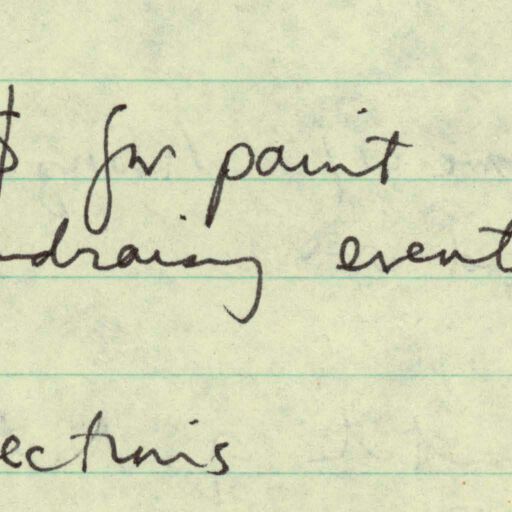 $ for paint
ndraising event
ections